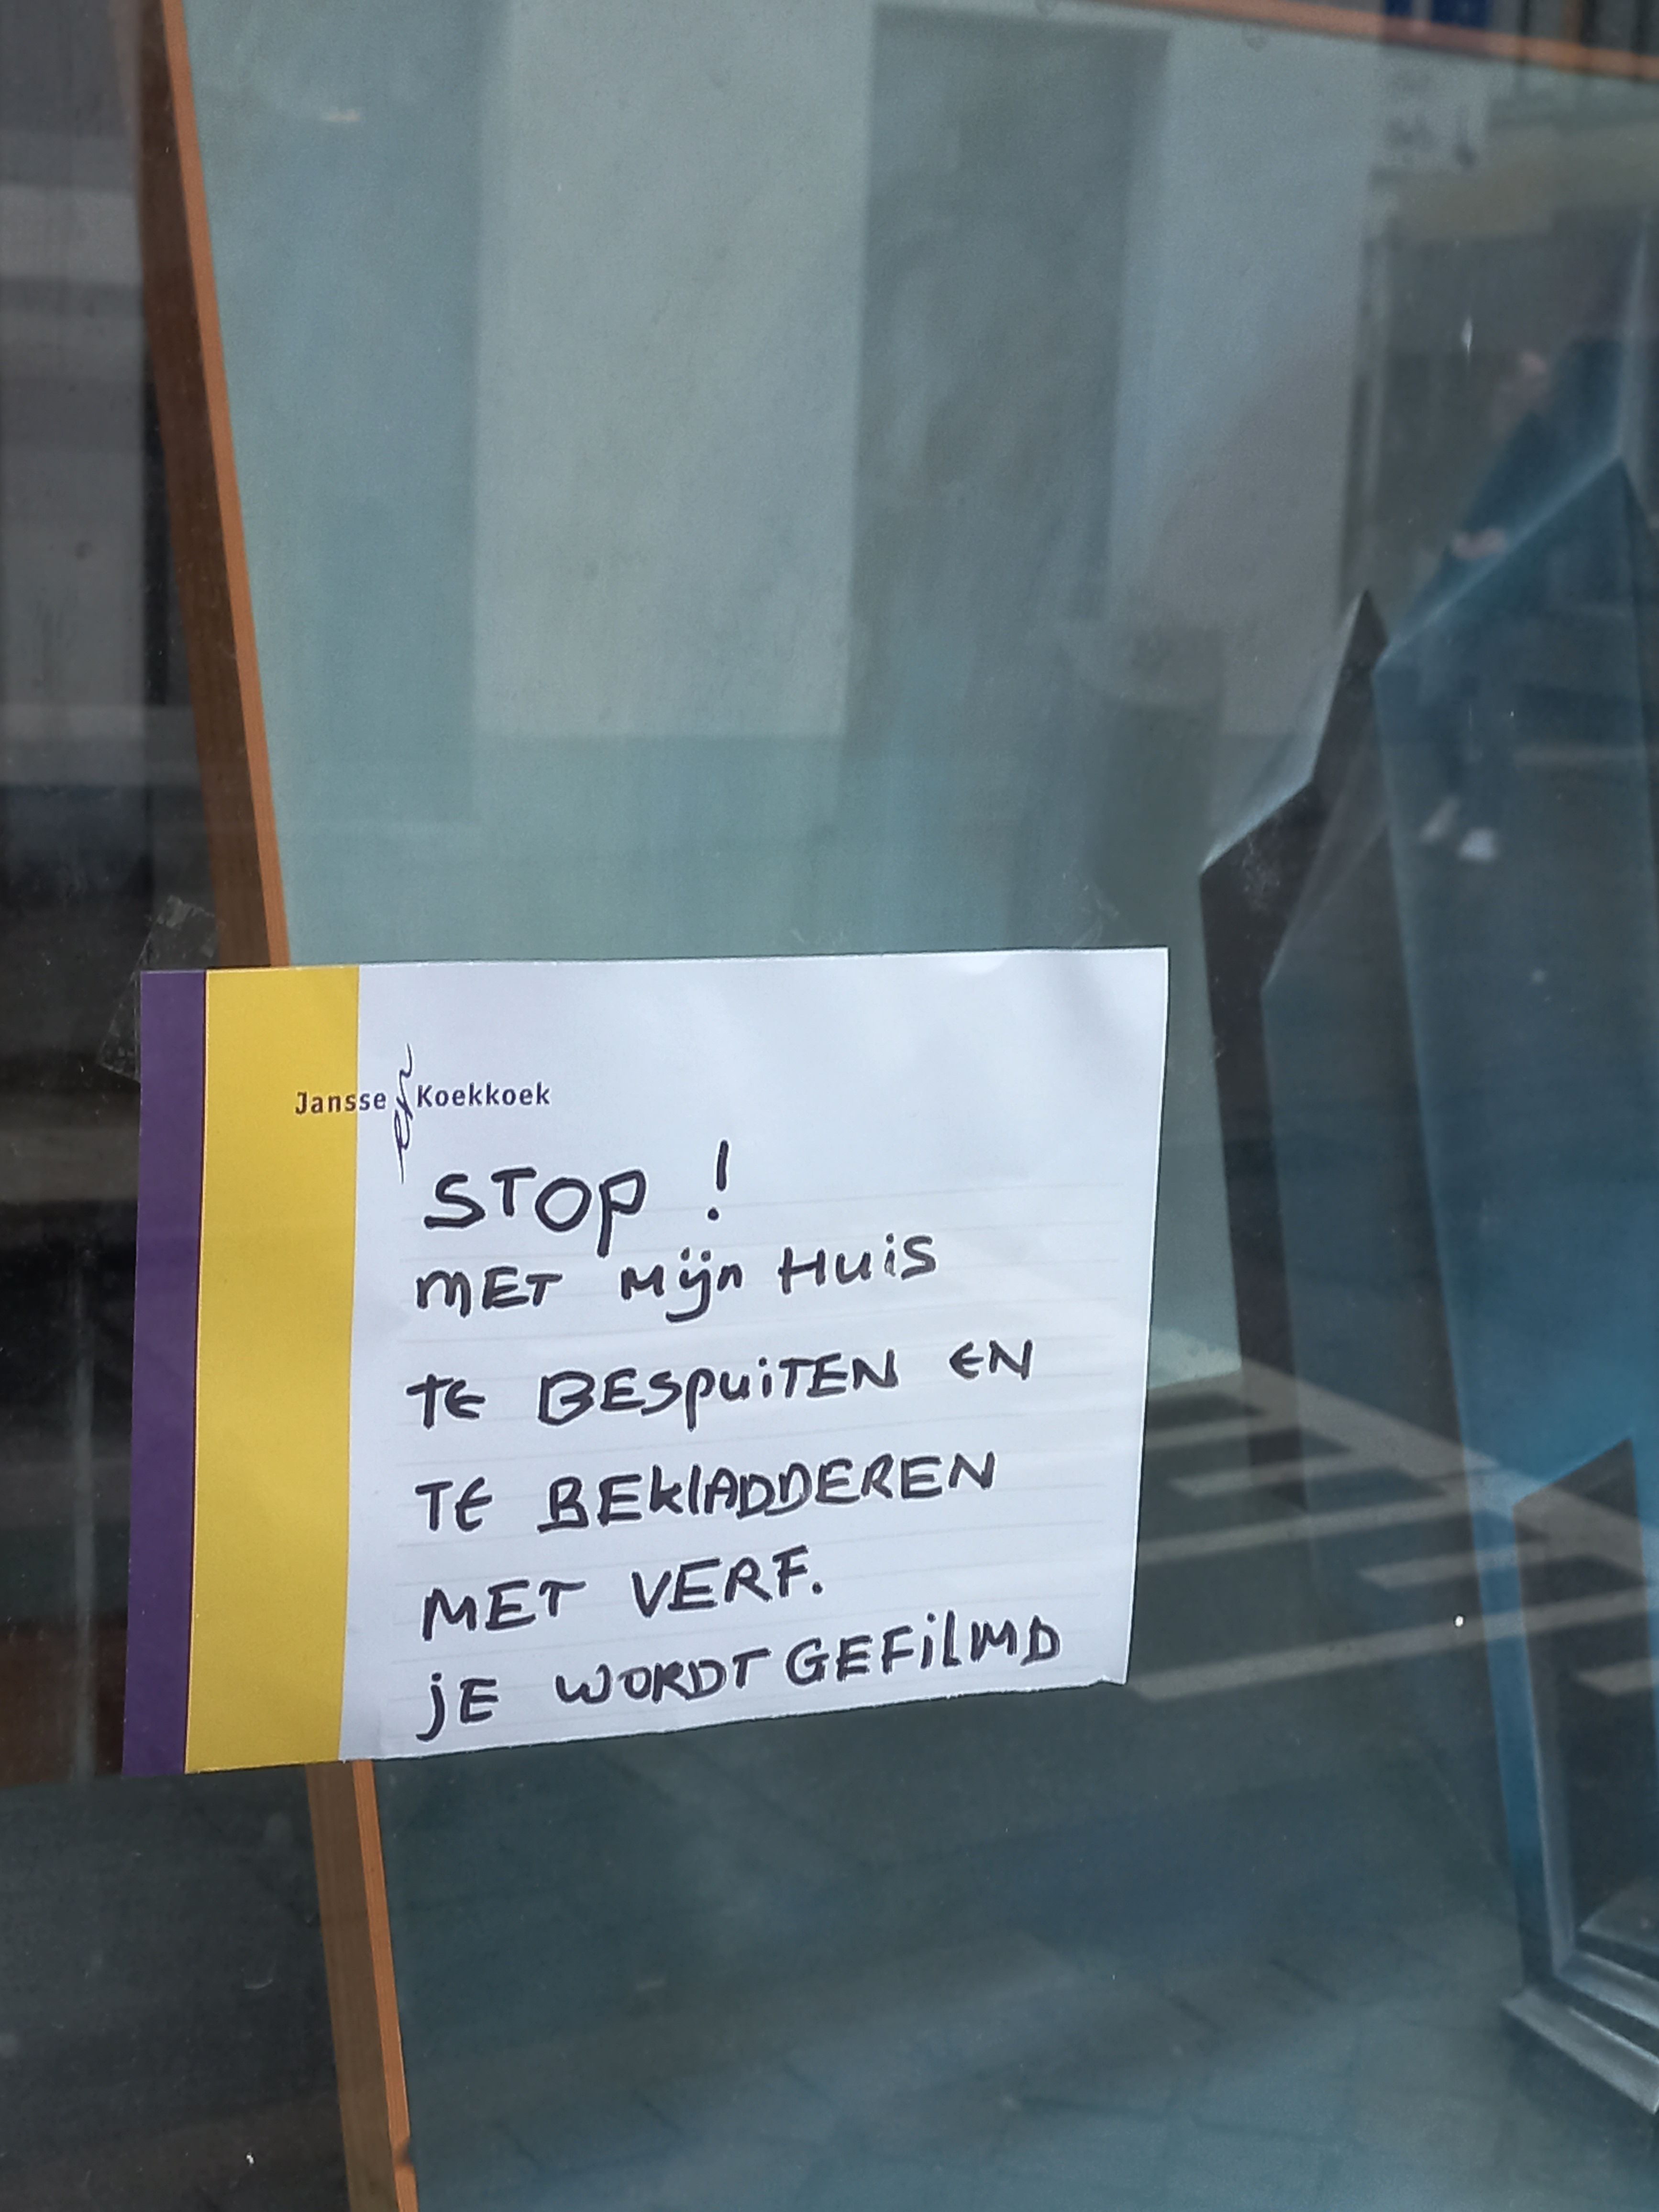 Jansse en Koekkoek
STOP !
MET Mijn HuiS
TE BESpuiTEN EN
TE BEKlADDEREN
MET VERF.
jE WORDT GEFilMD